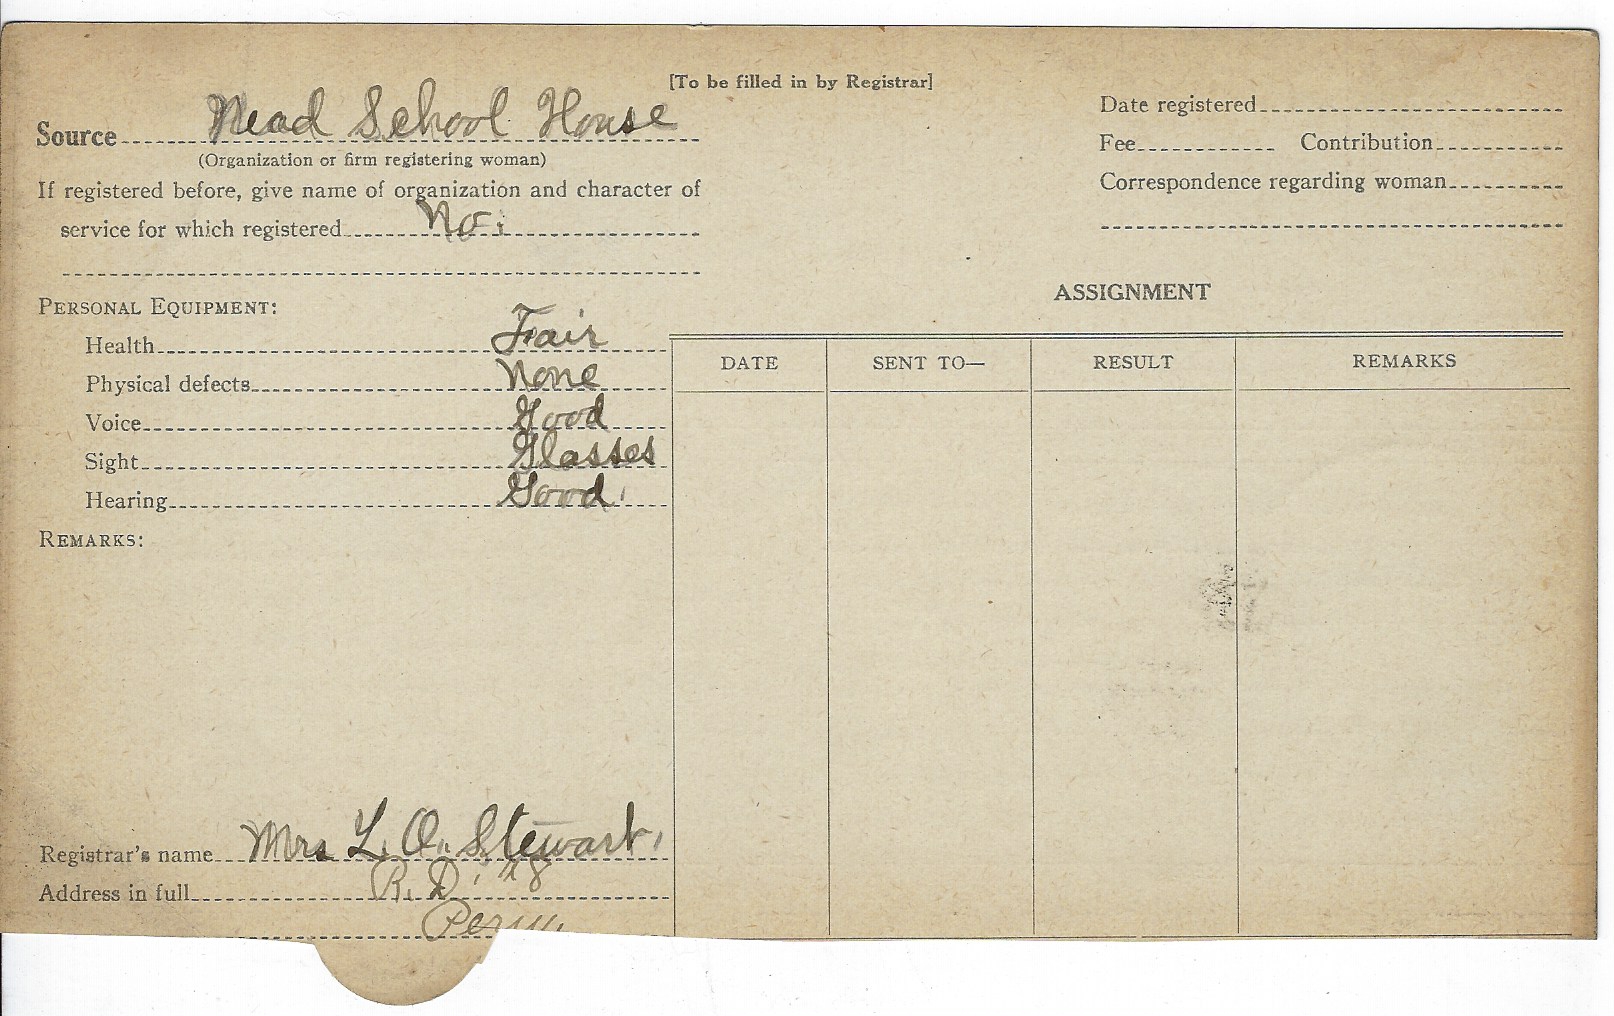 [To be filled in by Registrar]
Source Nead School House
(Organization or firm registering woman)
If registered before, give name of organization and character of
service for which registered No.
Date registered
Fee Contribution
Correspondence regarding woman
PERSONAL EQUIPMENT:
Health Fair
Physical defects None
Voice Good
Sight Glasses
Hearing Good
REMARKS:
Registrar's name Mrs L. O. Stewart.
Address in full R. D. #8
Peru
ASSIGNMENT
DATE SENT TO— RESULT REMARKS